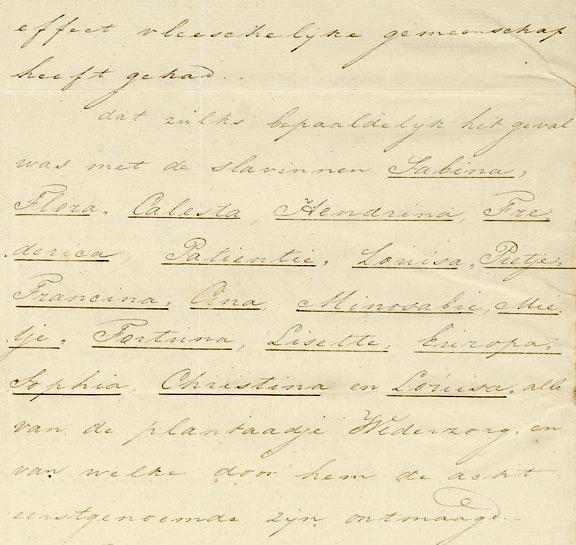 effect vleeschelijke gemeenschap
heeft gehad.
dat zulks bepaaldelyk het geval
was met de slavinnen Sabina,
Flora, Calesta, Hendrina, Fre
derica, Patientie, Louisa, Pietje,
Francina, Ana, Minosabie, Mie
tje, Fortuna, Lisette, Europa,
Sophia, Christina en Louisa, alle
van de plantaadje Wederzorg, en
van welke door hem de acht
eerstgenoemde zyn ontmaagd.